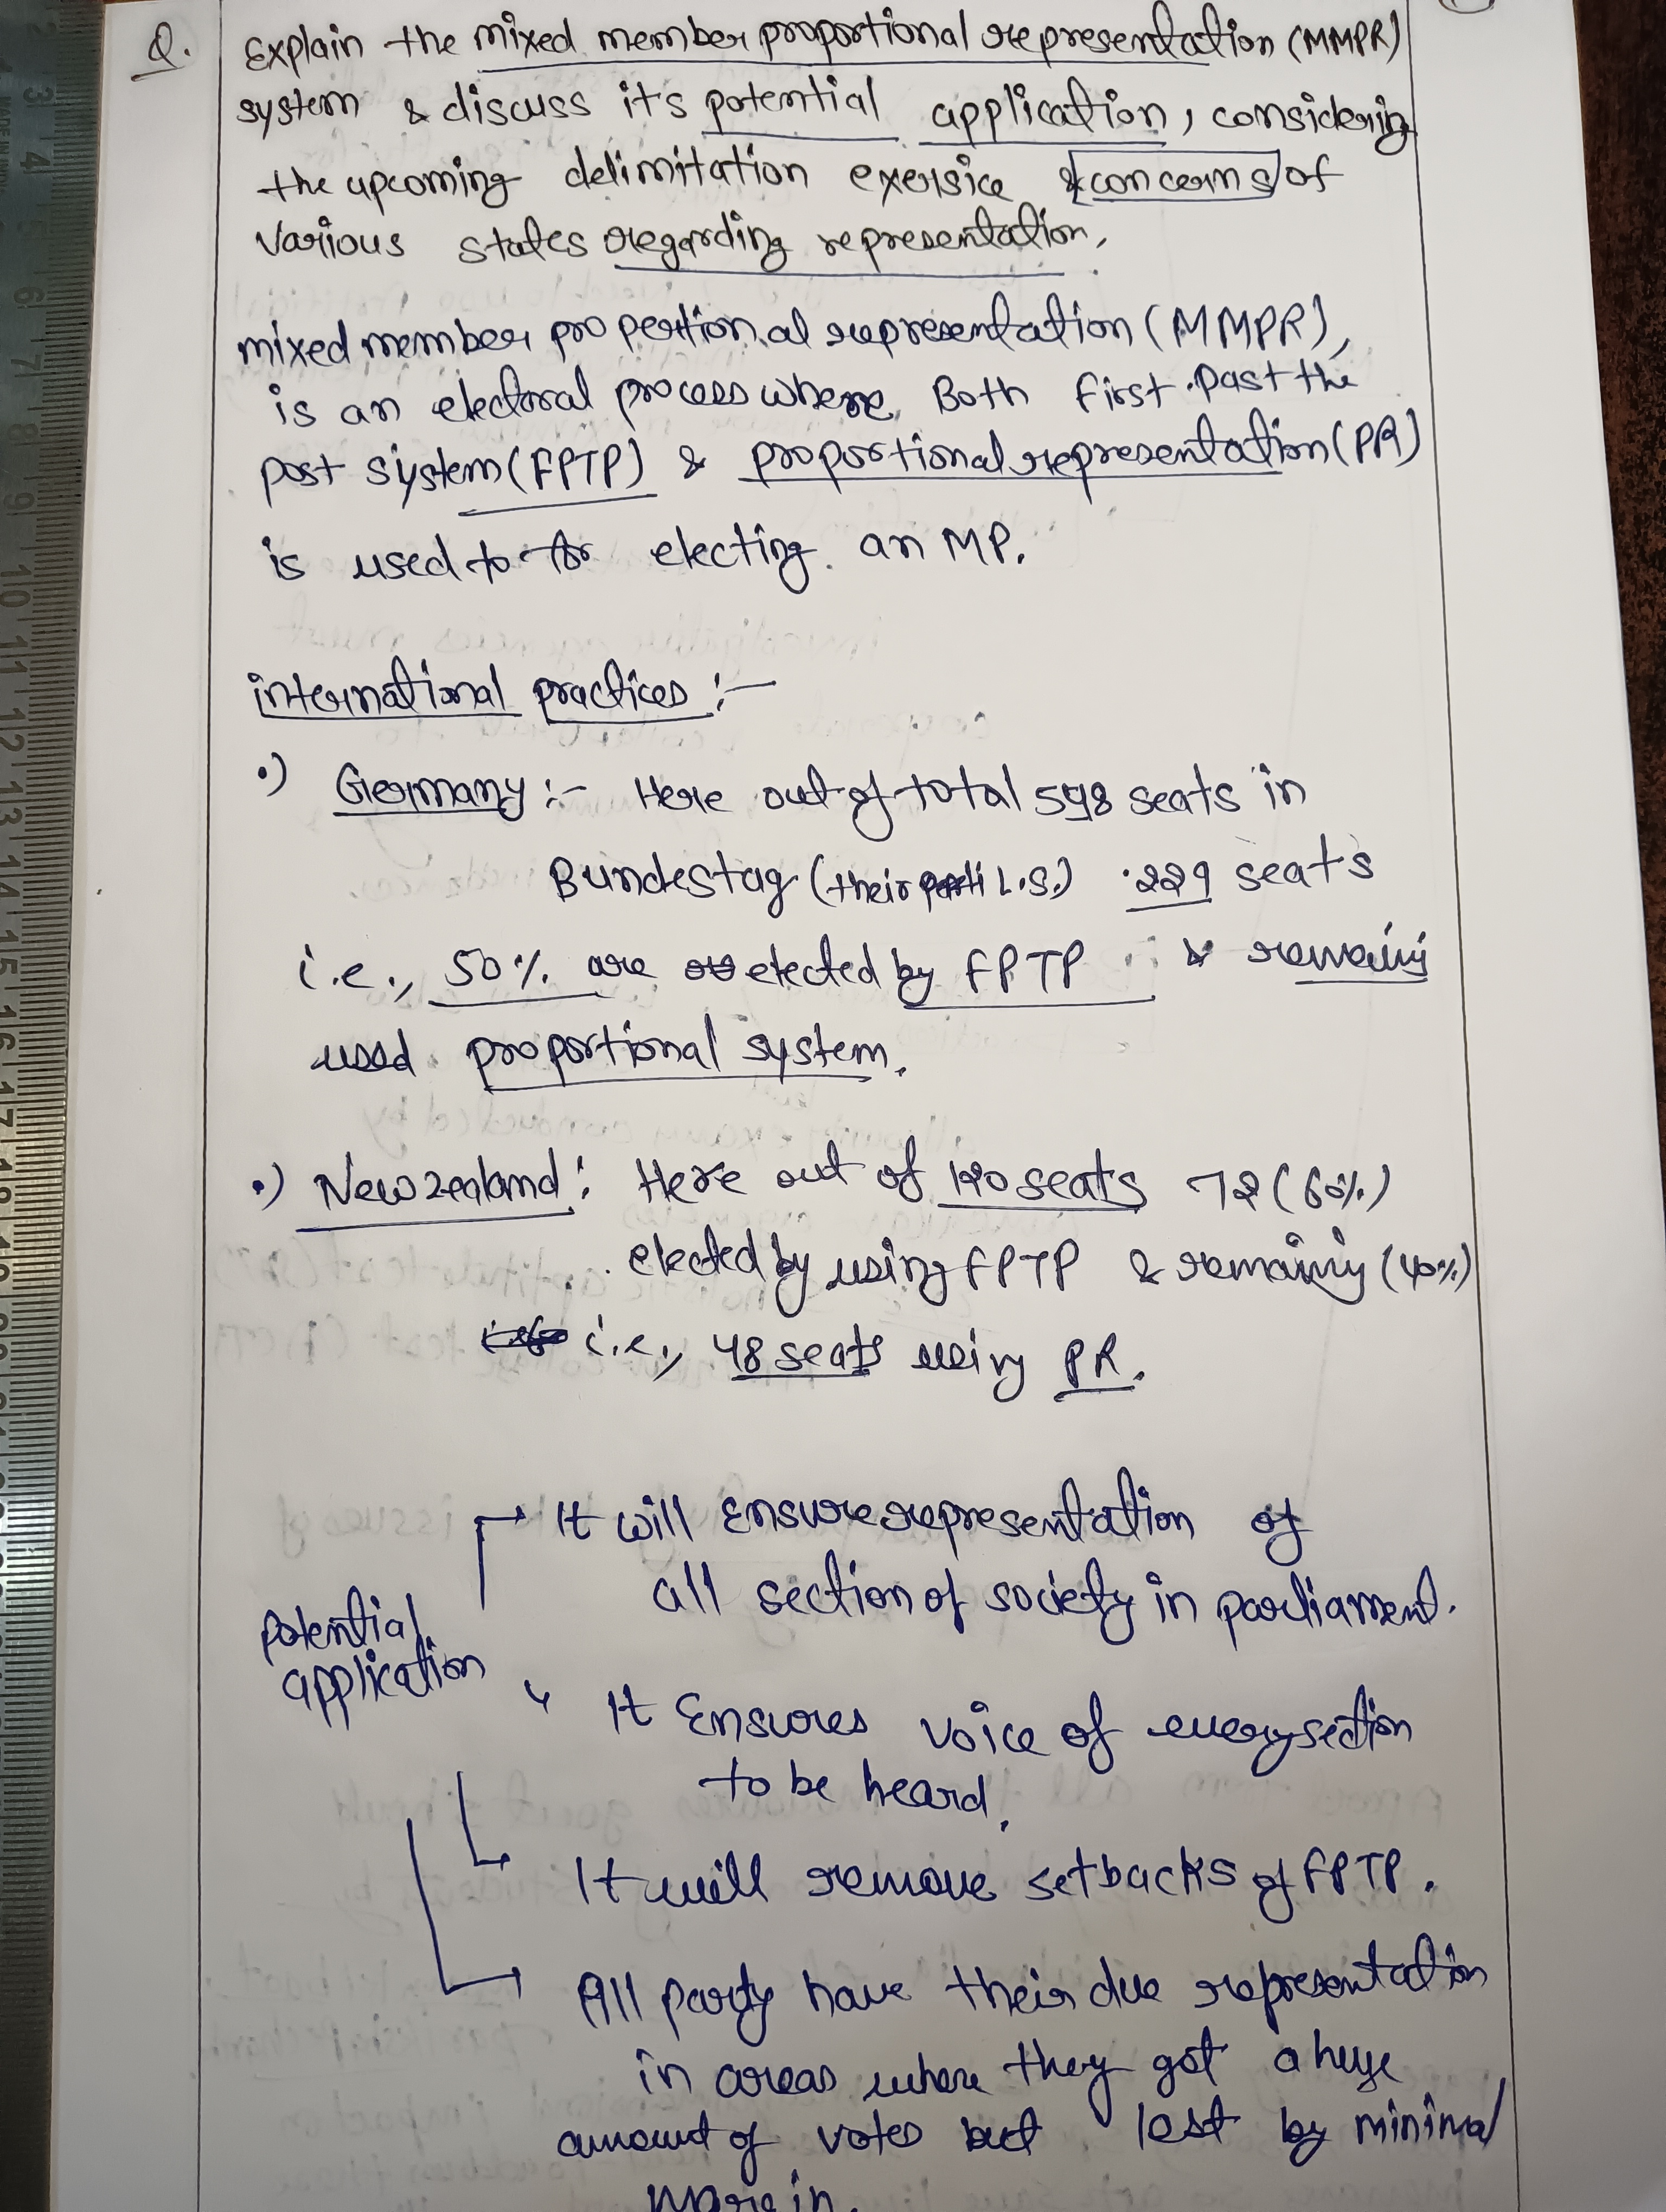 Q. Explain the mixed member proportional representation (MMPR)
system & discuss it's potential application, considering
the upcoming delimitation exersice & concerns of
various states regarding representation.
mixed member propertional representation (MMPR),
is an electoral process where Both First Past the
post system (FPTP) & proportional representation (PR)
is used to for electing an MP.
international practices :-
•) Germany :- Here out of total 598 seats in
Bundestag (their L.S.) 229 seats
i.e., 50% are elected by FPTP & remaining
used proportional system.
•) New zealand : Here out of 120 seats 72 (60%)
elected by using FPTP & remaining (40%)
i.e., 48 seats using PR.
potential application
→ It will Ensure representation of
all section of society in parliament.
It Ensures voice of every section
to be heard.
It will remove setbacks of FPTP.
→ All party have their due representation
in areas where they got a huge
amount of votes but lost by minimal
margin.